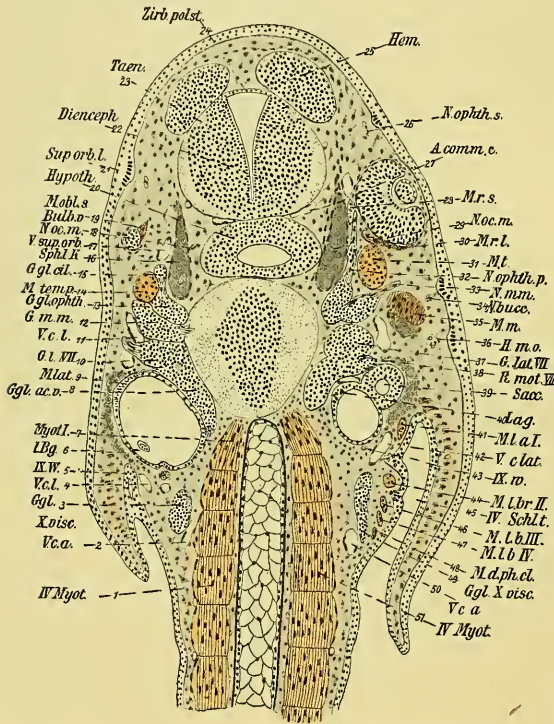 Zirb. polst.
24
25
Hem.
Taen.
23
Dienceph
22
Sup orb. l.
21
Hypoth.
20
M.obl. s
Bulb. o 19
N oc. m. 18
V. sup. orb. 17
Sphl K 16
Ggl. cil. 15
M temp. 14
Ggl. ophth. 13
G m. m. 12
V. c. l. 11
G. l. VII 10
M.lat. 9
Ggl. ac. v. 8
Myot I. 7
l.Bg. 6
IX. W. 5
V.c.l. 4
Ggl. 3
X.visc.
Vc.a. 2
IV Myot. 1
26
N.ophth. s.
A.comm. e.
27
28 M.r.s.
29 N.oc. m.
30 M.r.l.
31 M.t.
32 N.ophth. p.
33 N. mm.
34 N.bucc.
35 M.m.
36 H. m. o.
37 G. lat. VII
38 R. mot. VII
39 Sacc.
40 Lag.
41 M.l.a I.
42 V. c lat.
43 IX. w.
44 M. l.br II.
45 IV. Schl t.
46 M. l. b. III.
47 M.l.b IV.
48 M.d.ph. cl.
49 Ggl. X visc.
50 Vc a
51 IV Myot.